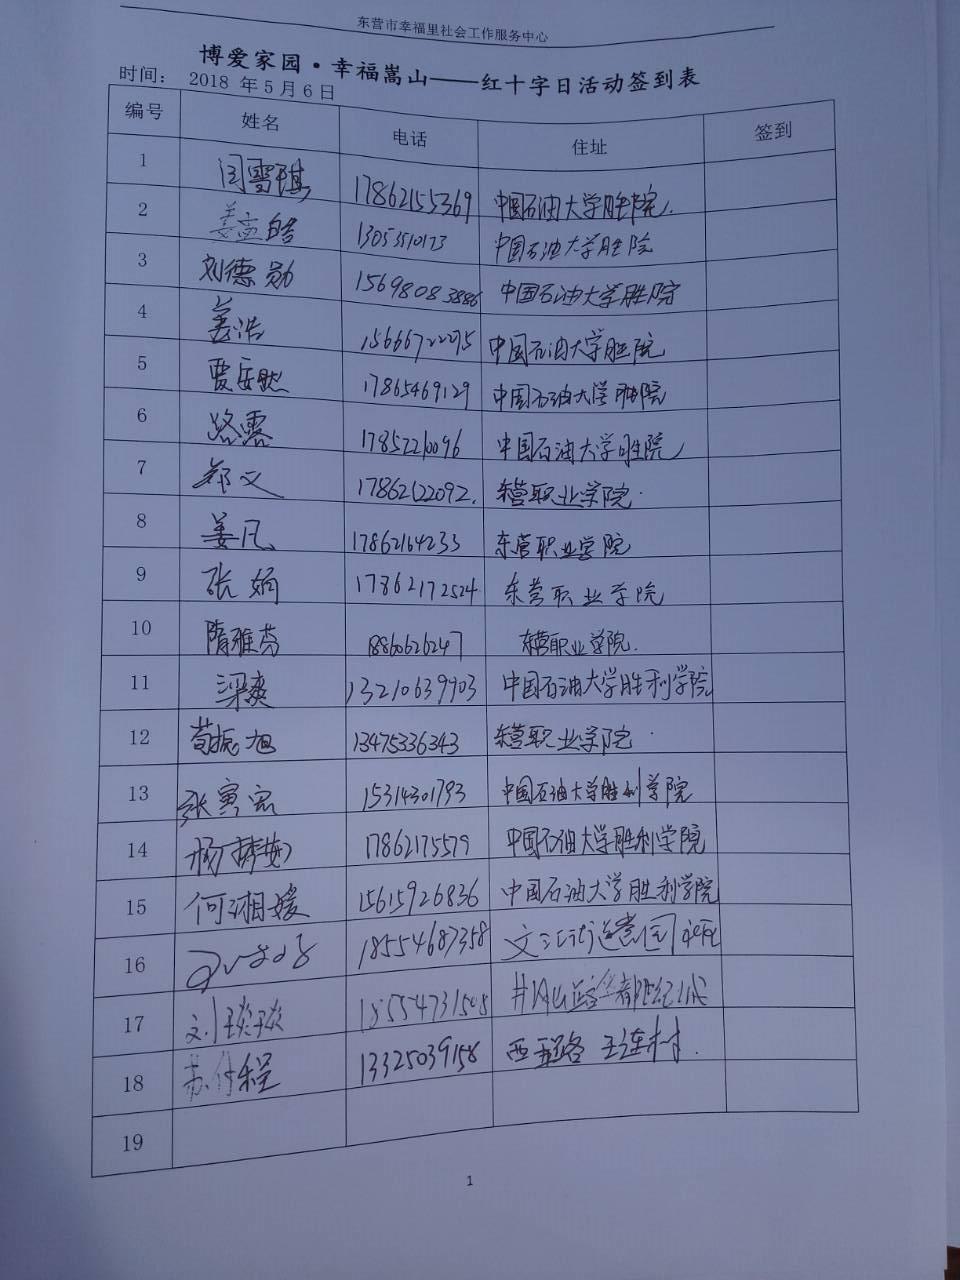 东营市幸福里社会工作服务中心
博爱家园·幸福嵩山——红十字日活动签到表
时间： 2018 年 5 月 6 日
编号 姓名 电话 住址 签到
1 闫雪琪 17862155369 中国石油大学胜院
2 姜孟皓 13053510173 中国石油大学胜院
3 刘德勋 15698083886 中国石油大学胜院
4 姜浩 15666722275 中国石油大学胜院
5 贾岳然 17865469129 中国石油大学胜院
6 路露 17852210096 中国石油大学胜院
7 郑文 17862122092. 东营职业学院.
8 姜凡 17862164233 东营职业学院
9 张娟 17862172524 东营职业学院
10 隋雅芬 18860626247 东营职业学院.
11 梁爽 13210639903 中国石油大学胜利学院
12 荀振旭 13475336343 东营职业学院.
13 张寓宾 15314301793 中国石油大学胜利学院
14 杨 17862175579 中国石油大学胜利学院
15 何湘媛 15615926836 中国石油大学胜利学院
16 18554687358
17 刘 18554731505
18 苏 程 13325039158 西 路 王连村.
19
1